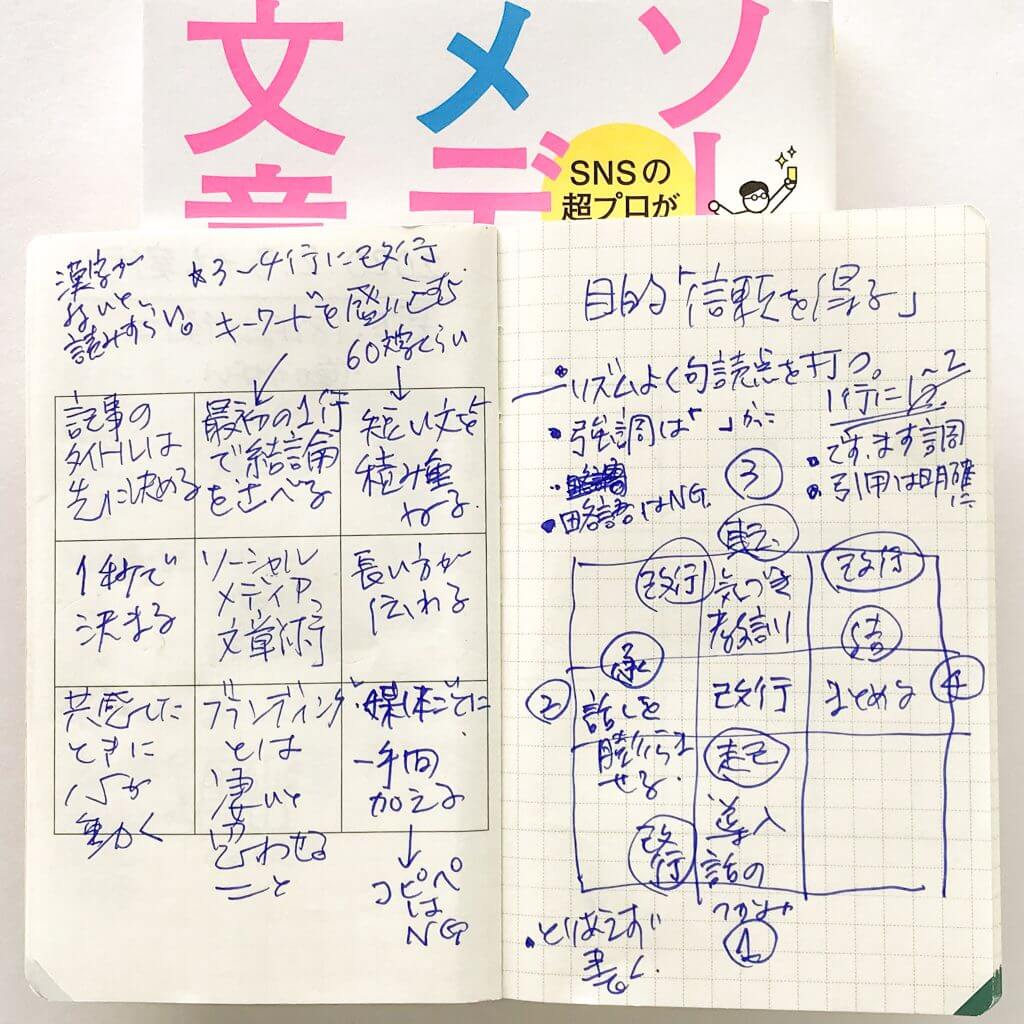 ソー
メデ
文章
SNSの
超プロが
漢字が
ないと、
読みずらい。
☆3〜4行に改行
キーワードを盛り込む
60文字くらい
↓
記事の
タイトルは
先に決める
最初の1行
で結論
を述べる
短い文を
積み重
ねる。
1秒で
決まる
ソーシャル
メディア
文章術
長い方が
伝わる
共感した
ときに
心が
動く
ブランディング
とは
凄いと
思わせる
こと
媒体ごとに
一手間
加える
↓
コピペ
は
NG
目的「信頼を得る」
・リズムよく句読点を打つ。
1行に1〜2
・強調は「 」かっこ
・略語はNG.
・です、ます調
・引用は明確
に
③
転
改行
気づき
教訓
改行
結
②
承
話しを
膨らま
せる。
改行
まとめる
④
起
改行
導入
話の
つかみ
①
・とりあえず
書く。